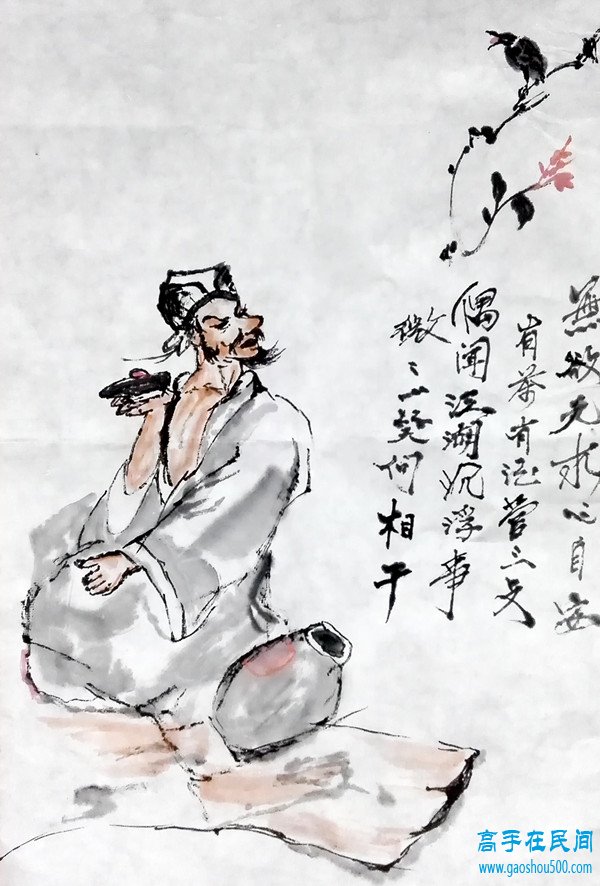 無欲无求心自安
有茶有酒管三歺
偶闻江湖沉浮事
微〻一笑何相干
高手在民间
www.gaoshou500.com